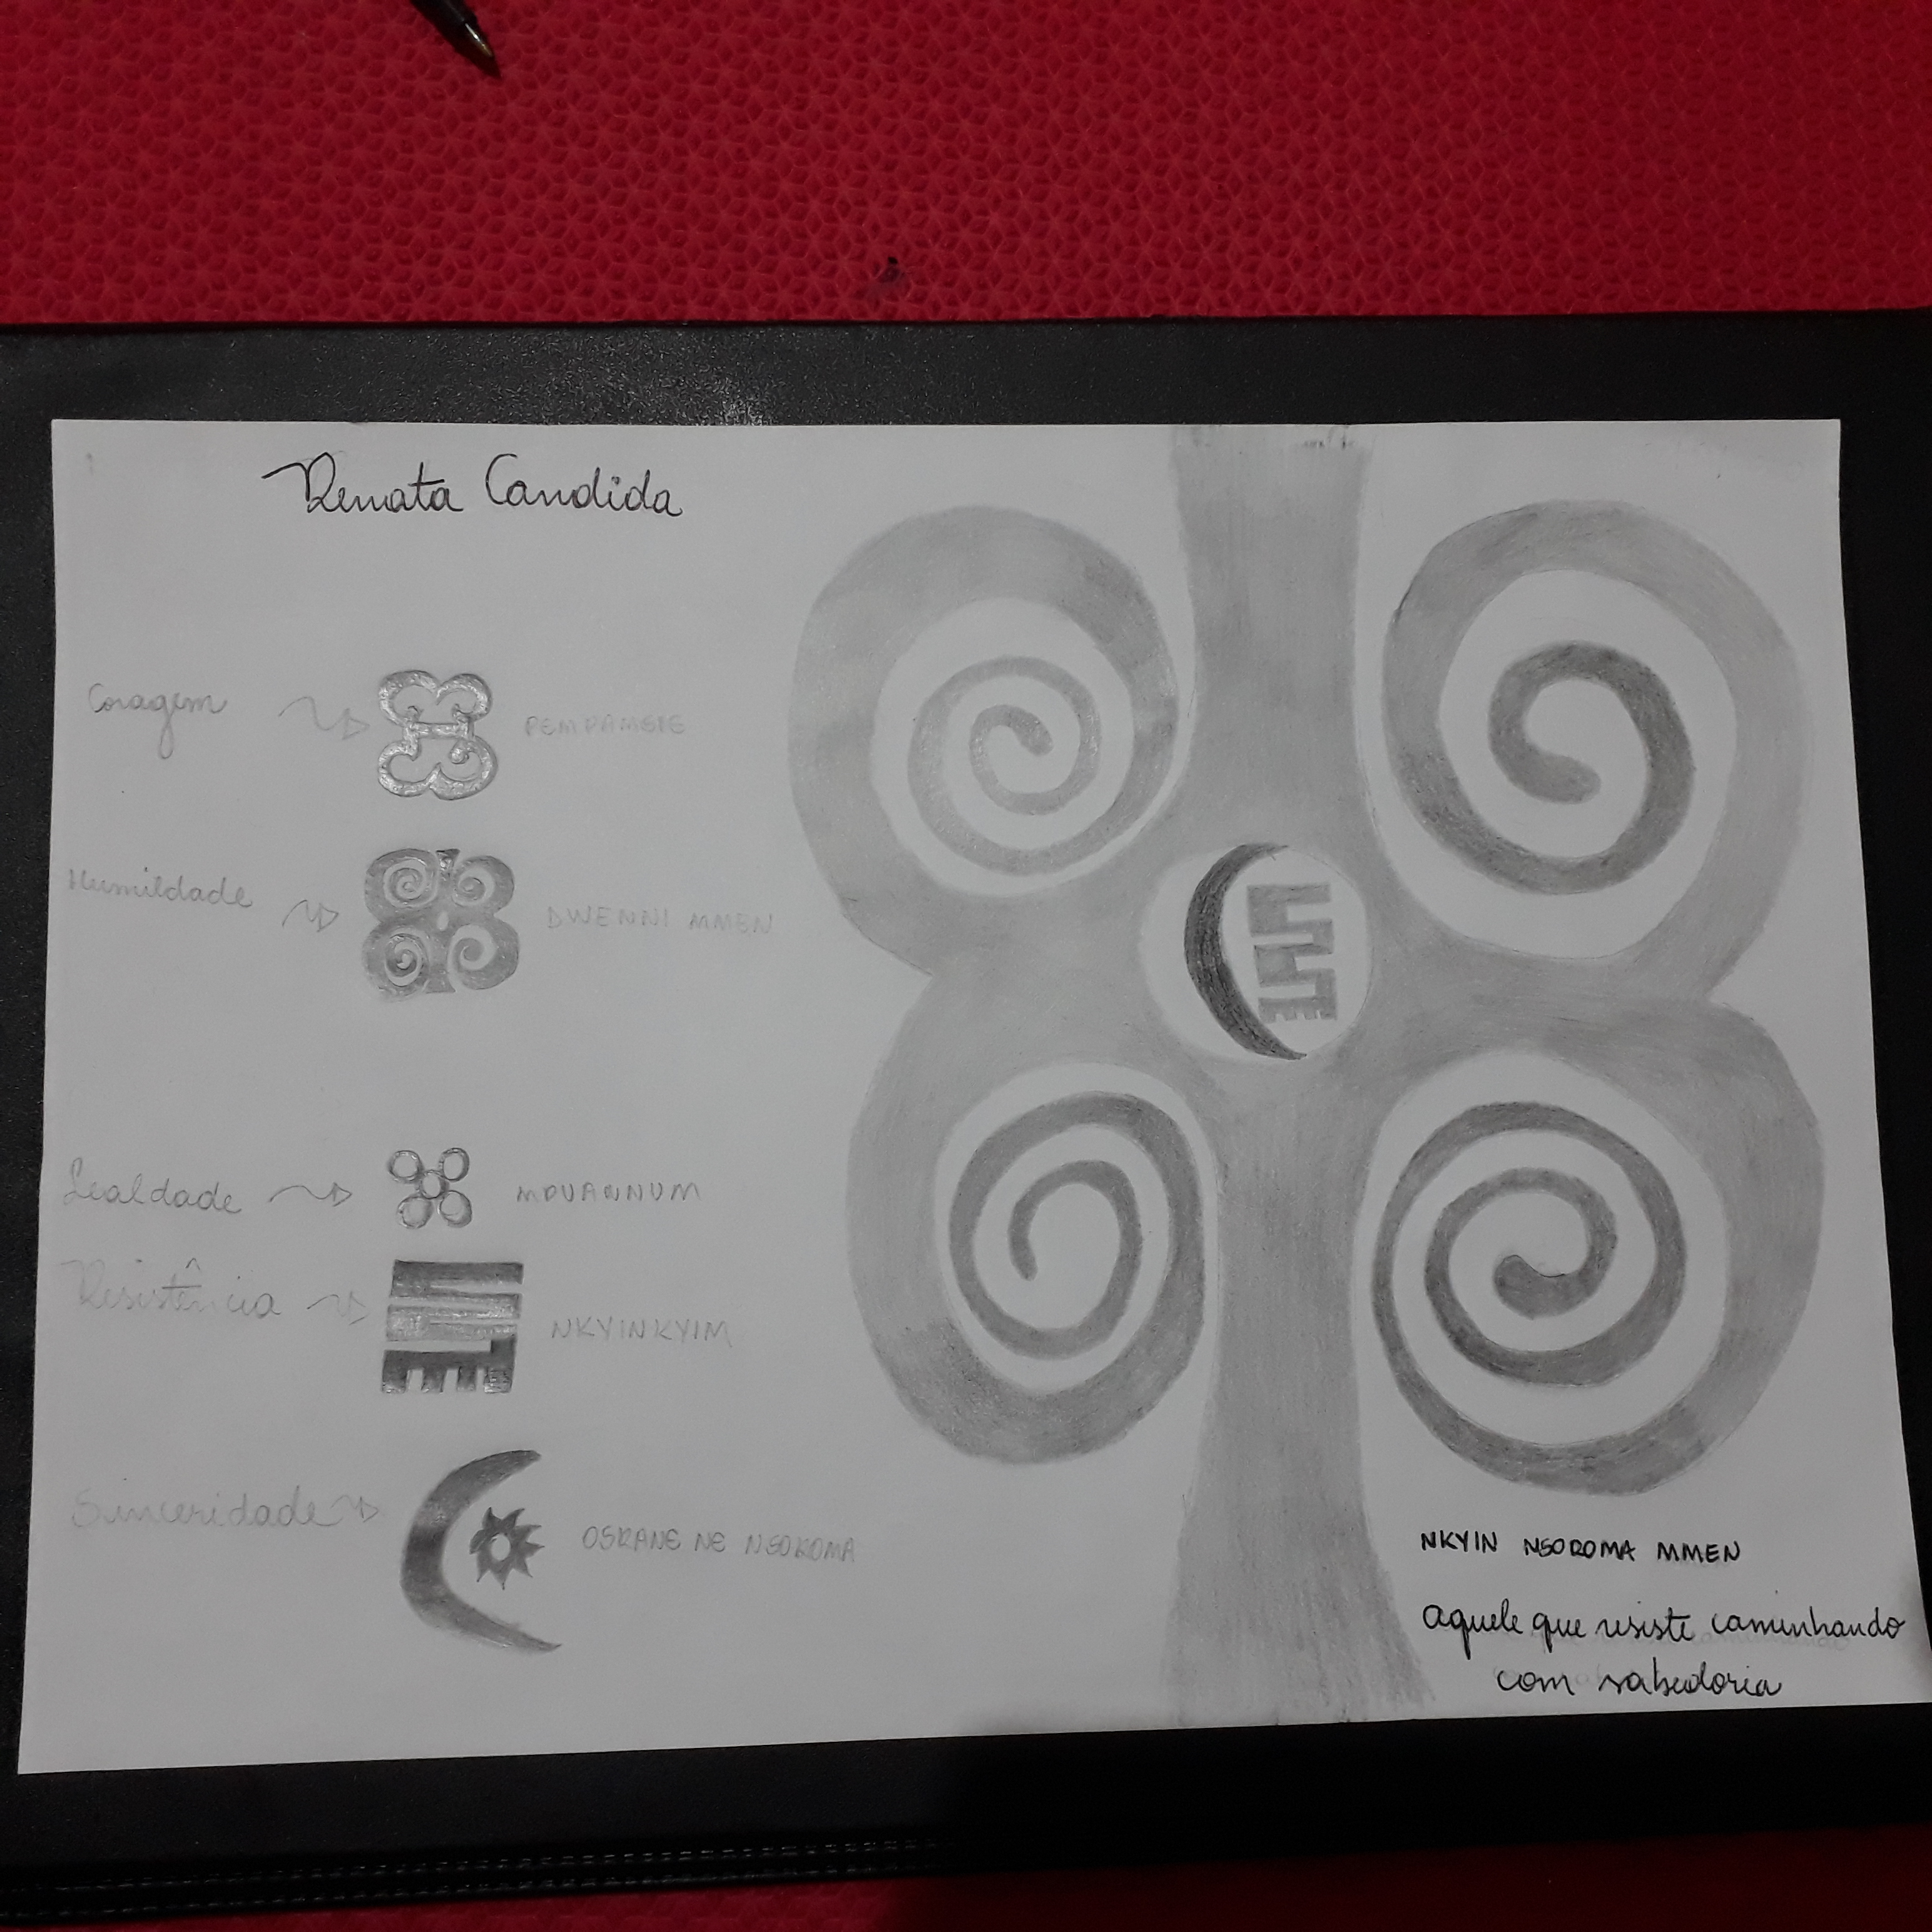 Renata Candida
Coragem PEMPAMSIE
Humildade DWENNI MMEN
Lealdade MPUANNUM
Resistência NKYINKYIM
Sinceridade OSRANE NE NSOROMA
NKYIN NSOROMA MMEN
Aquele que resiste caminhando
com sabedoria